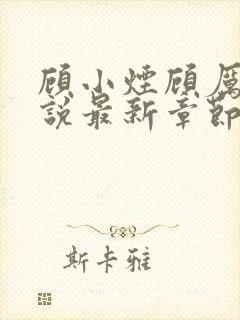 顾小煙顾厲
說最新章節
斯卡雅